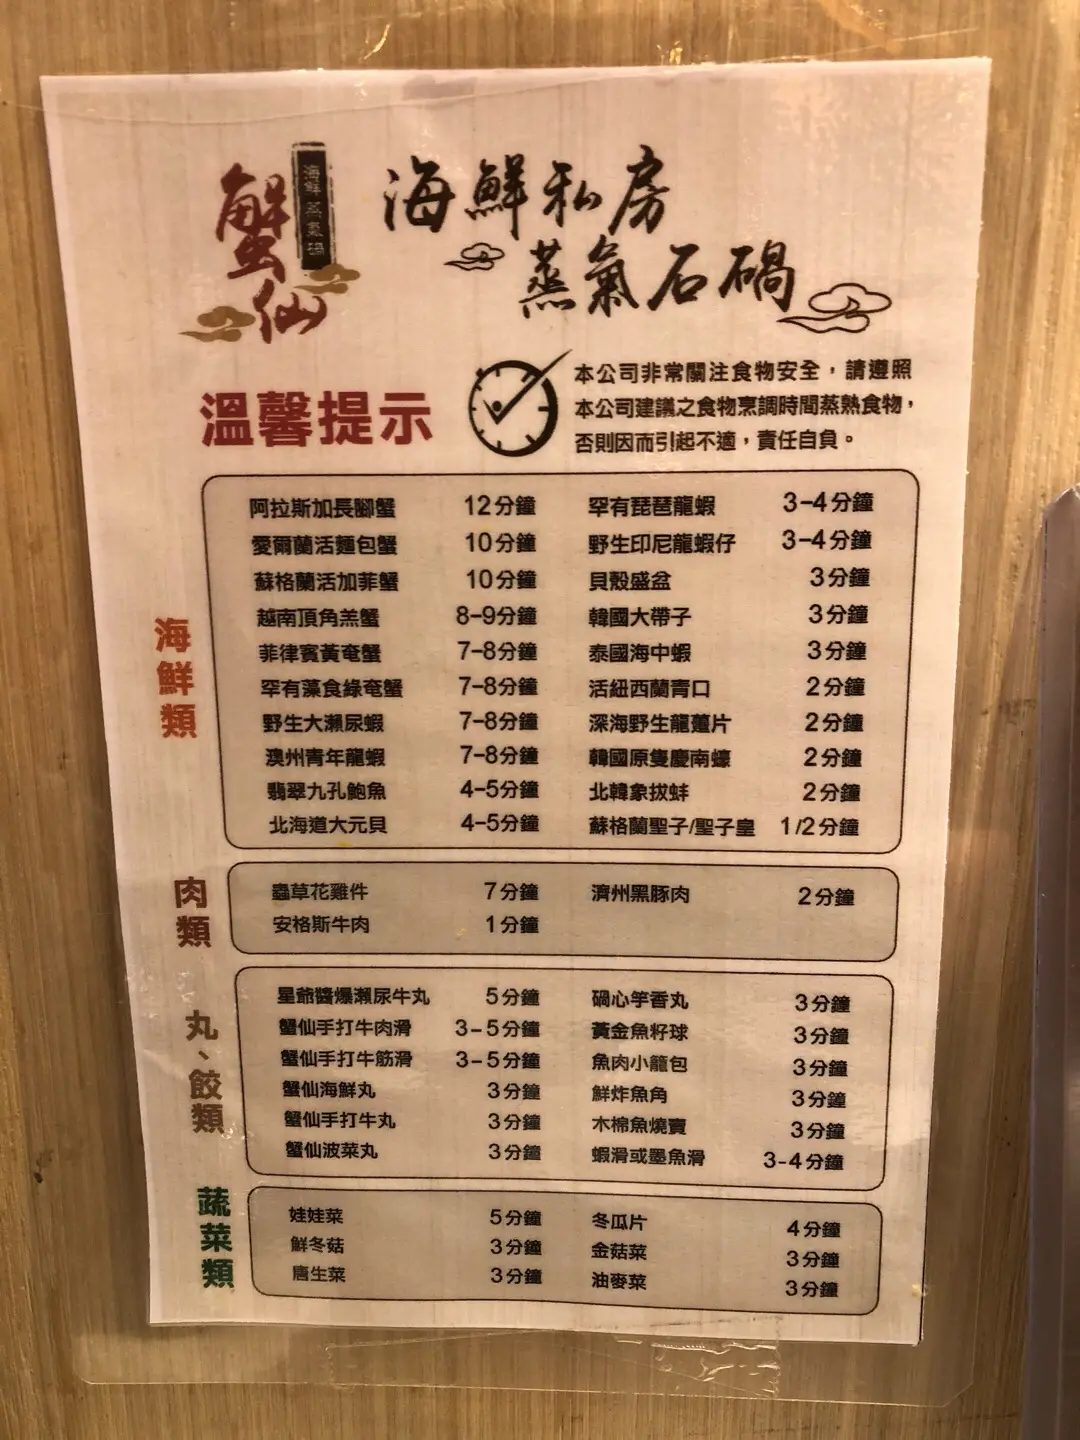 蟹仙
海鮮蒸氣鍋
海鮮私房
蒸氣石鍋
溫馨提示
本公司非常關注食物安全，請遵照
本公司建議之食物烹調時間蒸熟食物，
否則因而引起不適，責任自負。
海鮮類
阿拉斯加長腳蟹 12分鐘 罕有琵琶龍蝦 3-4分鐘
愛爾蘭活麵包蟹 10分鐘 野生印尼龍蝦仔 3-4分鐘
蘇格蘭活加菲蟹 10分鐘 貝殼盛盆 3分鐘
越南頂角羔蟹 8-9分鐘 韓國大帶子 3分鐘
菲律賓黃奄蟹 7-8分鐘 泰國海中蝦 3分鐘
罕有藻食綠奄蟹 7-8分鐘 活紐西蘭青口 2分鐘
野生大瀨尿蝦 7-8分鐘 深海野生龍躉片 2分鐘
澳州青年龍蝦 7-8分鐘 韓國原隻慶南蠔 2分鐘
翡翠九孔鮑魚 4-5分鐘 北韓象拔蚌 2分鐘
北海道大元貝 4-5分鐘 蘇格蘭聖子/聖子皇 1/2分鐘
肉類
蟲草花雞件 7分鐘 濟州黑豚肉 2分鐘
安格斯牛肉 1分鐘
丸、餃類
星爺醬爆瀨尿牛丸 5分鐘 鍋心芋香丸 3分鐘
蟹仙手打牛肉滑 3-5分鐘 黃金魚籽球 3分鐘
蟹仙手打牛筋滑 3-5分鐘 魚肉小籠包 3分鐘
蟹仙海鮮丸 3分鐘 鮮炸魚角 3分鐘
蟹仙手打牛丸 3分鐘 木棉魚燒賣 3分鐘
蟹仙波菜丸 3分鐘 蝦滑或墨魚滑 3-4分鐘
蔬菜類
娃娃菜 5分鐘 冬瓜片 4分鐘
鮮冬菇 3分鐘 金菇菜 3分鐘
唐生菜 3分鐘 油麥菜 3分鐘